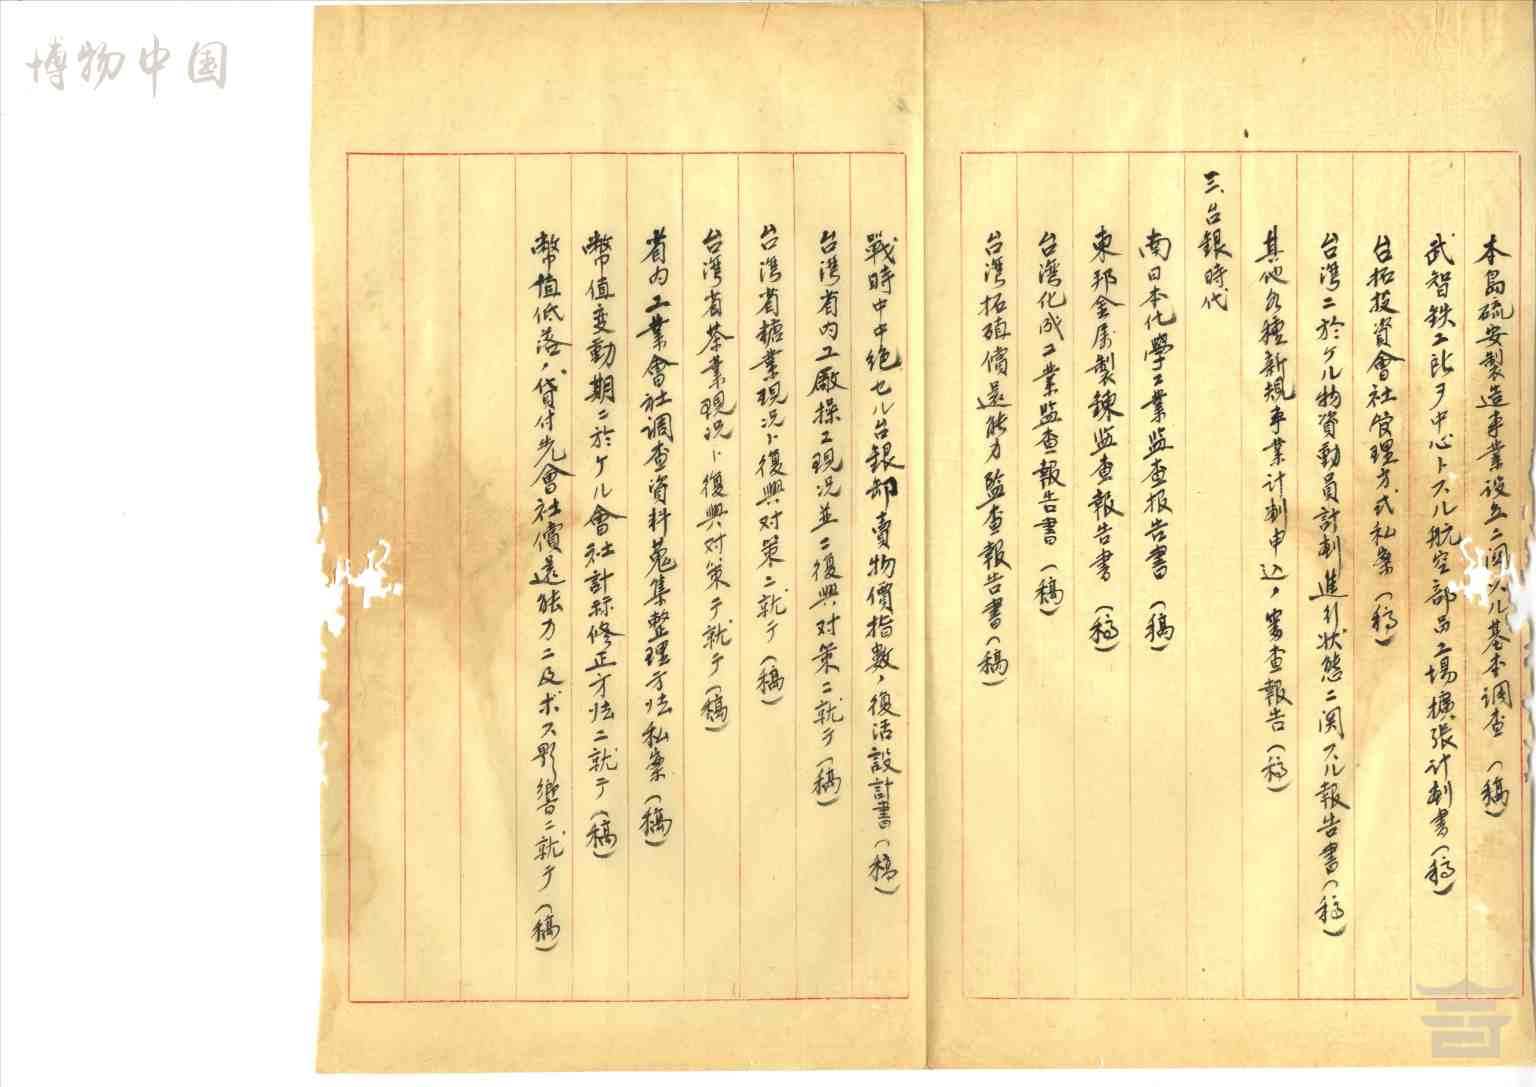 博物中国
本島硫安製造事業設立ニ関スル基本調査（稿）
武智鉄工所ヲ中心トスル航空部品工場擴張計劃書（稿）
台拓投資會社管理方式私案（稿）
台湾ニ於ケル物資動員計劃進行状態ニ関スル報告書（稿）
其他各種新規事業計劃申込ノ審査報告（稿）
三、台銀時代
南日本化學工業監査报告書（稿）
東邦金属製錬監査報告書（稿）
台湾化成工業監査報告書（稿）
台湾拓殖償還能力監査報告書（稿）
戰時中中絶セル台銀卸賣物價指數ノ復活設計書（稿）
台湾省内工廠操工現況並ニ復興对策ニ就テ（稿）
台湾省糖業現況ト復興对策ニ就テ（稿）
台湾省茶業現況ト復興对策ニ就テ（稿）
省内工業會社調査資料蒐集整理方法私案（稿）
幣值変動期ニ於ケル會社計算修正方法ニ就テ（稿）
幣值低落ノ貸付先會社償還能力ニ及ボス影響ニ就テ（稿）